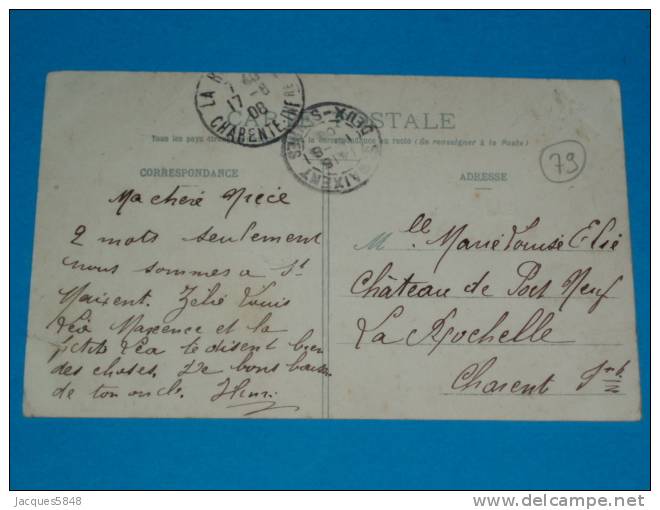 CARTE POSTALE
LA
17 -8
08
CHARENTE-INFRE
DEUX-SÈVRES
MAIXENT
Tous les pays la correspondance au recto (Se renseigner à la Poste)
79
CORRESPONDANCE
Ma chère Nièce
2 mots seulement
nous sommes a St
Maixent. Zélie Louis
Léa Maxence et la
petite Léa te disent bien
des choses. De bons baisers
de ton oncle. Henri
ADRESSE
Melle Marie Louise Elie
Château de Port Neuf
La Rochelle
Charent Inf.
Jacques5848
delcampe.net